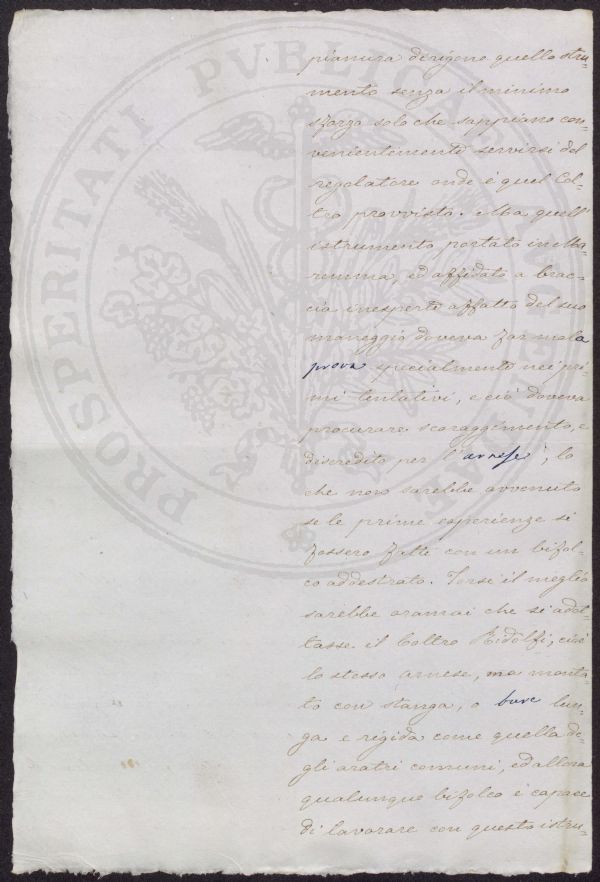 PROSPERITATI PVBLICAE AVGENDAE
pianura dirigono quello stru-
mento senza il minimo
sforzo solo che sappiano con-
venientemente servirsi del
regolatore onde è quel Col-
tro provvisto. Ma quell'
istrumento, portato in Ma-
remma, ed affidato a brac-
cia inesperte affatto del suo
maneggio doveva far mala
prova specialmente nei pri-
mi tentativi, e ciò doveva
procurare scoraggimento, e
discredito per l'arnese, lo
che non sarebbe avvenuto
se le prime esperienze si
fossero fatte con un bifol-
co addestrato. Forse il meglio
sarebbe oramai che si adot-
tasse il Coltro Ridolfi, cioè
lo stesso arnese, ma monta-
to con stanga, o bure lun-
ga e rigida come quella de-
gli aratri comuni, ed allora
qualunque bifolco è capace
di lavorare con questo istru-